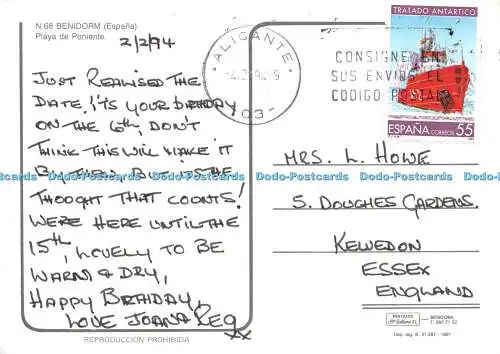 N.68 BENIDORM (España)
Playa de Poniente.
2/2/94
JUST REALISED THE
DATE! ITS YOUR BIRTHDAY
ON THE 6th, DON'T
THINK THIS WILL MAKE IT
BY THEN, BUT ITS THE
THOUGHT THAT COUNTS!
WERE HERE UNTIL THE
15th, LOVELY TO BE
WARM & DRY,
HAPPY BIRTHDAY,
LOVE JOANA REG
XX
REPRODUCCION PROHIBIDA
ALICANTE
-4.2.94-9
03-
CONSIGNE EN
SUS ENVIOS EL
CODIGO POSTAL
TRATADO ANTARTICO
ESPAÑA CORREOS 55
MRS. L. HOWE
5. DOUCHES GARDENS.
KELVEDON
ESSEX
ENGLAND
BENIDORM
Dep. leg. B. 31.287 - 1991
Dodo-Postcards Dodo-Postcards Dodo-Postcards Dodo-Postcards